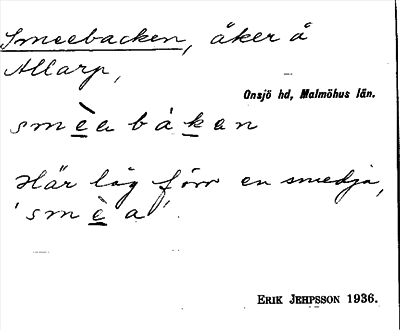 Smeebacken, åker å
Allarp,
Onsjö hd, Malmöhus län.
smèabákan
Här låg förr en smedja,
'smèa'.
ERIK JEHPSSON 1936.